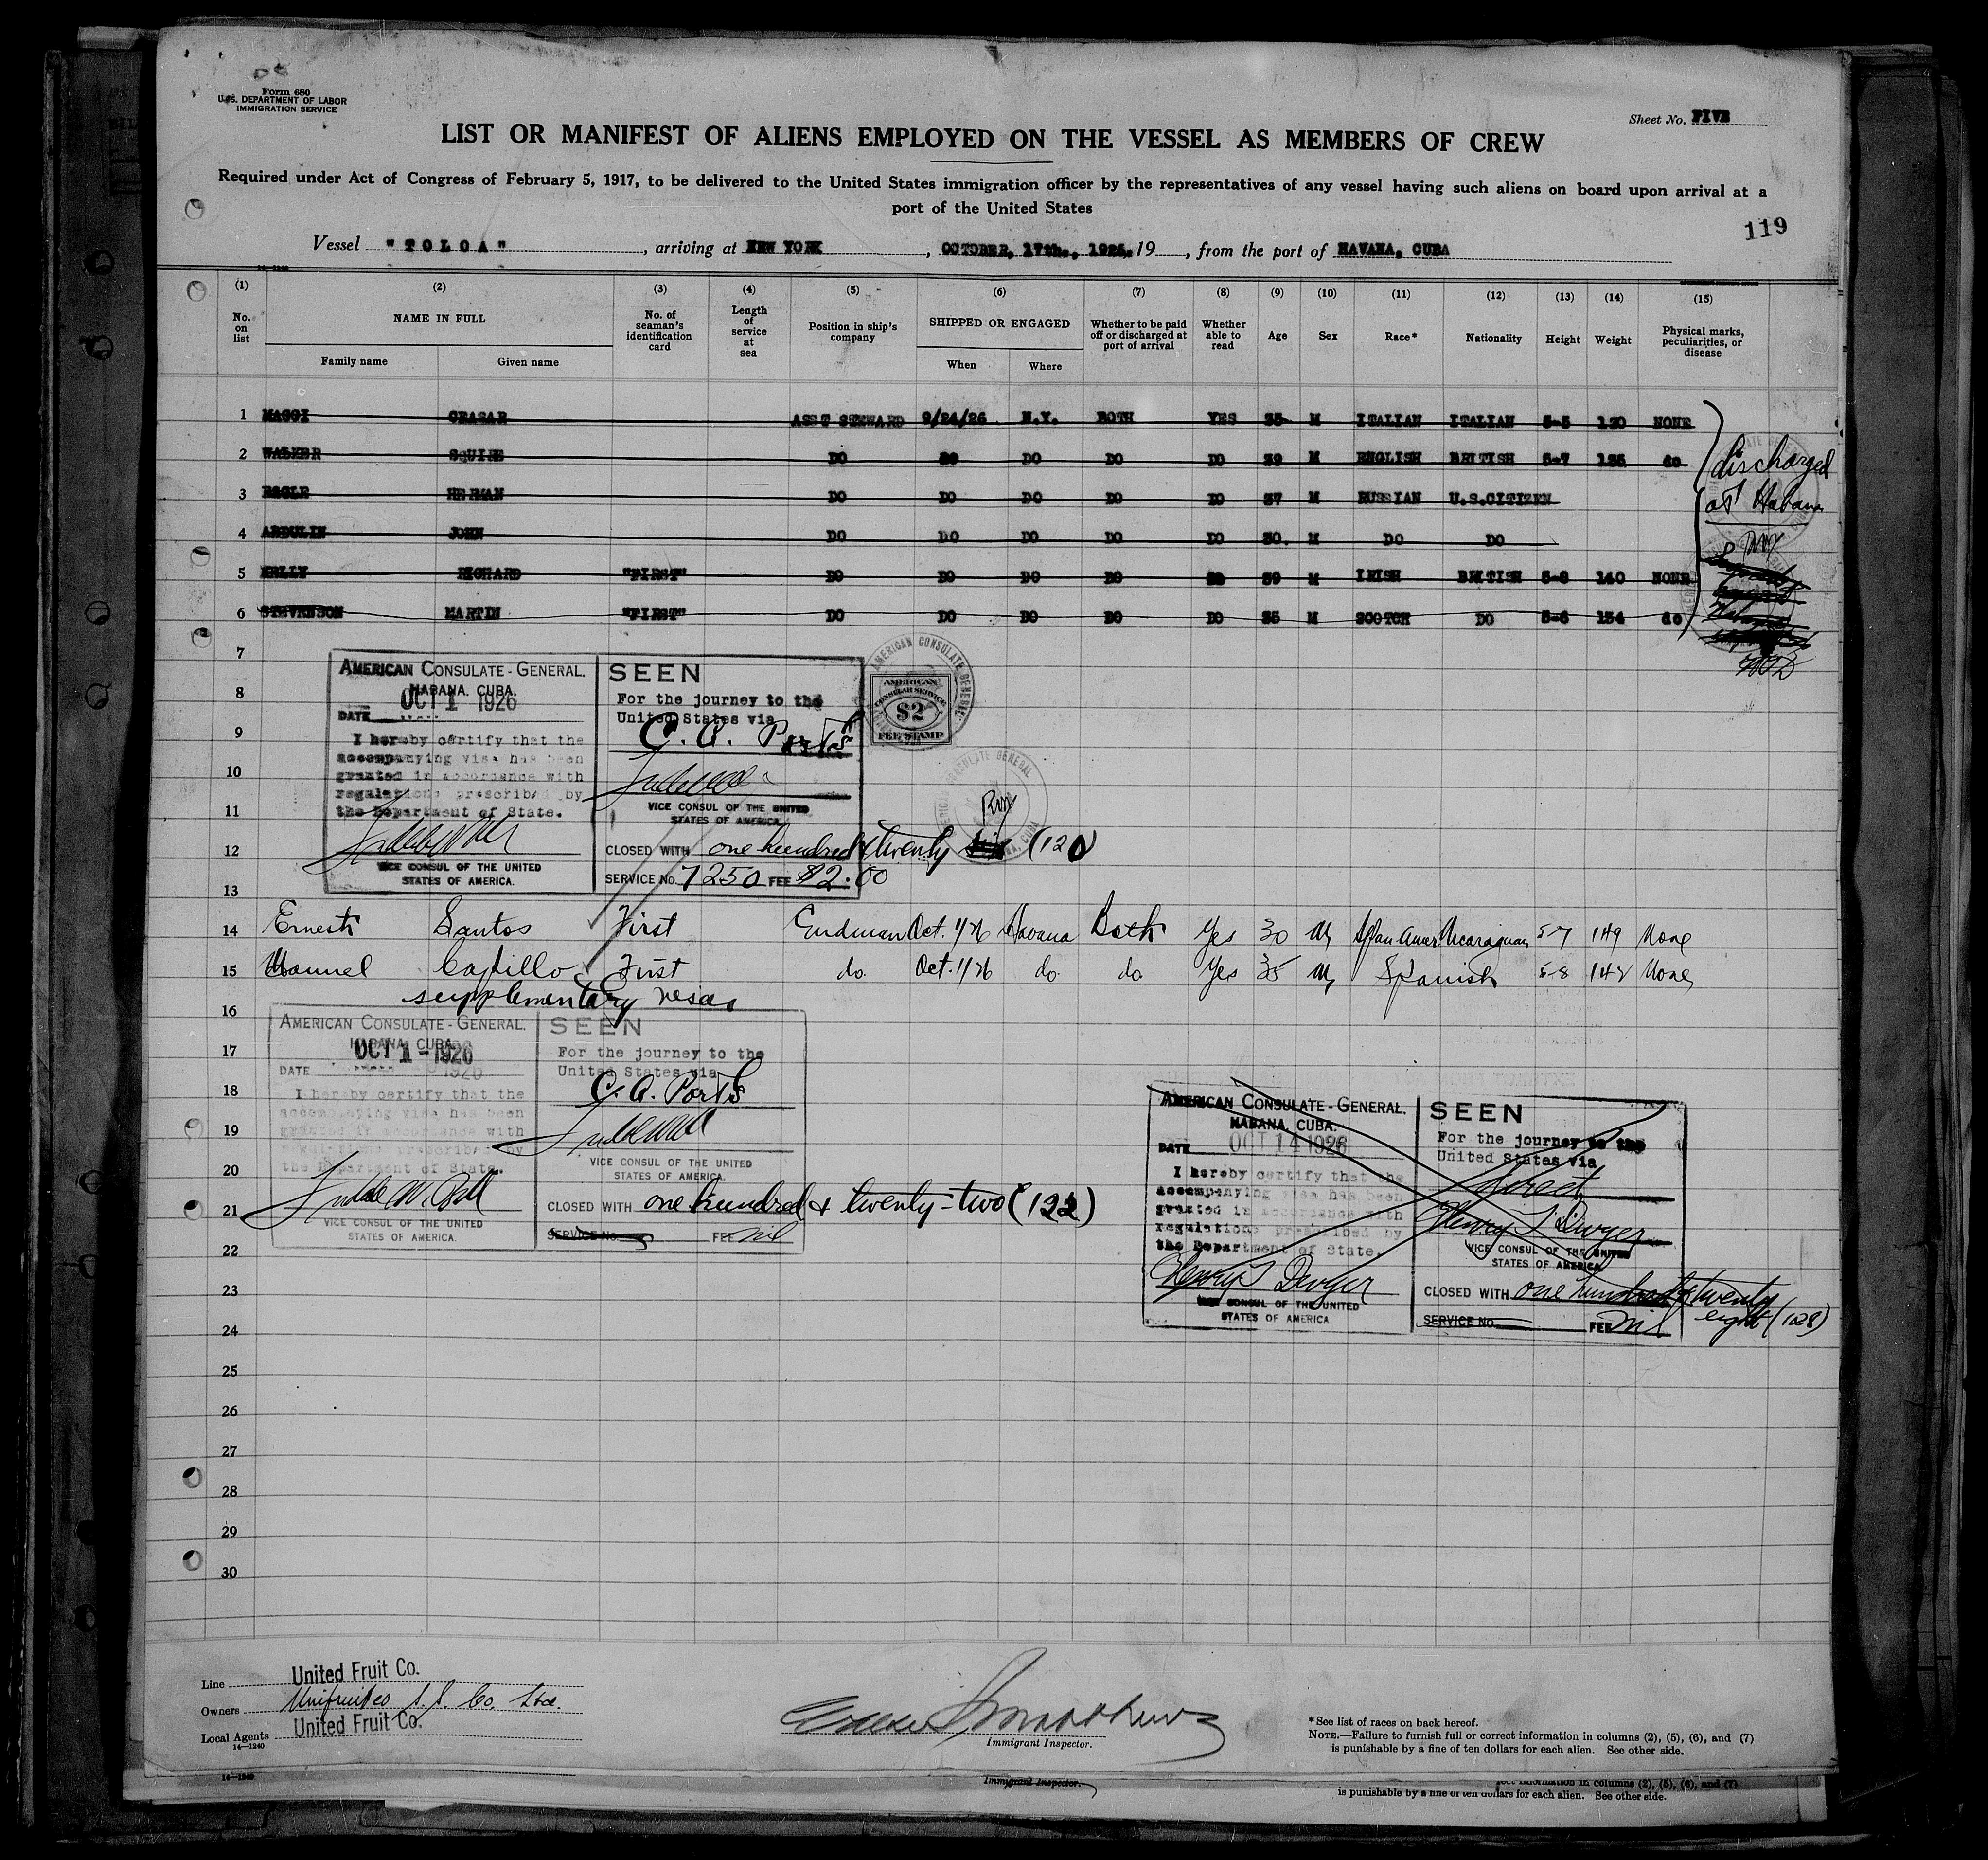 Form 680
U.S. DEPARTMENT OF LABOR
IMMIGRATION SERVICE
Sheet No. FIVE
LIST OR MANIFEST OF ALIENS EMPLOYED ON THE VESSEL AS MEMBERS OF CREW
Required under Act of Congress of February 5, 1917, to be delivered to the United States immigration officer by the representatives of any vessel having such aliens on board upon arrival at a
port of the United States
119
Vessel "TOLOA", arriving at NEW YORK, OCTOBER, 17th., 1926. 19, from the port of HAVANA, CUBA
14-1240
(1) (2) (3) (4) (5) (6) (7) (8) (9) (10) (11) (12) (13) (14) (15)
No. on list NAME IN FULL No. of seaman's identification card Length of service at sea Position in ship's company SHIPPED OR ENGAGED Whether to be paid off or discharged at port of arrival Whether able to read Age Sex Race* Nationality Height Weight Physical marks, peculiarities, or disease
Family name Given name When Where
1 MAGGI CEASAR ASST STEWARD 9/24/26 N.Y. BOTH YES 35 M ITALIAN ITALIAN 5-5 130 NONE
2 WALKER SQUIRE DO DO DO DO DO 39 M ENGLISH BRITISH 5-7 135 do
3 HERMAN DO DO DO DO DO 37 M RUSSIAN U.S.CITIZEN
4 ABDULIN JOHN DO DO DO DO DO 30. M DO DO
5 KELLY RICHARD "FIRST" DO DO DO DO DO 39 M IRISH BRITISH 5-8 140 NONE
6 STEVENSON MARTIN "FIRST" DO DO DO DO DO 35 M SCOTCH DO 5-6 134 do
discharged
at Habana
7
8
9
10
11
12
13
AMERICAN CONSULATE-GENERAL.
HABANA. CUBA.
DATE OCT 1 1926
I hereby certify that the
accompanying visa has been
granted in accordance with
regulations prescribed by
the Department of State.
VICE CONSUL OF THE UNITED
STATES OF AMERICA.
SEEN
For the journey to the
United States via
C. A. Ports
VICE CONSUL OF THE UNITED
STATES OF AMERICA.
CLOSED WITH one hundred & twenty six (120)
SERVICE No. 7250 FEE $2.00
AMERICAN CONSULATE GENERAL
AMERICAN
CONSULAR SERVICE
$2
FEE STAMP
14 Ernesti Santos First Oct. 1/26 Havana Both Yes 30 M Span Amer. Nicaraguan 5-7 149 None
15 Manuel First do. Oct. 1/26 do do Yes 35 M Spanish 5-8 142 None
supplementary visa
16
17
18
19
20
21
22
23
24
25
26
27
28
29
30
AMERICAN CONSULATE-GENERAL.
HABANA, CUBA.
DATE OCT 1-1926
I hereby certify that the
accompanying visa has been
granted in accordance with
regulations prescribed by
the Department of State.
VICE CONSUL OF THE UNITED
STATES OF AMERICA.
SEEN
For the journey to the
United States via
C. A. Ports
VICE CONSUL OF THE UNITED
STATES OF AMERICA.
CLOSED WITH one hundred & twenty-two (122)
SERVICE No. FEE nil
AMERICAN CONSULATE-GENERAL.
HABANA, CUBA.
DATE OCT 14 1926
I hereby certify that the
accompanying visa has been
granted in accordance with
regulations prescribed by
the Department of State.
Henry T Dwyer
VICE CONSUL OF THE UNITED
STATES OF AMERICA
SEEN
For the journey to the
United States via
direct
Henry T Dwyer
VICE CONSUL OF THE UNITED
STATES OF AMERICA
CLOSED WITH one hundred & twenty
eight (128)
SERVICE No. FEE nil
Line United Fruit Co.
Owners Unifruitco S.S. Co. Ltd.
Local Agents United Fruit Co.
14-1240
Immigrant Inspector.
*See list of races on back hereof.
NOTE.—Failure to furnish full or correct information in columns (2), (5), (6), and (7)
is punishable by a fine of ten dollars for each alien. See other side.
14-1240
Immigrant Inspector.
information in columns (2), (5), (6), and (7)
is punishable by a fine of ten dollars for each alien. See other side.